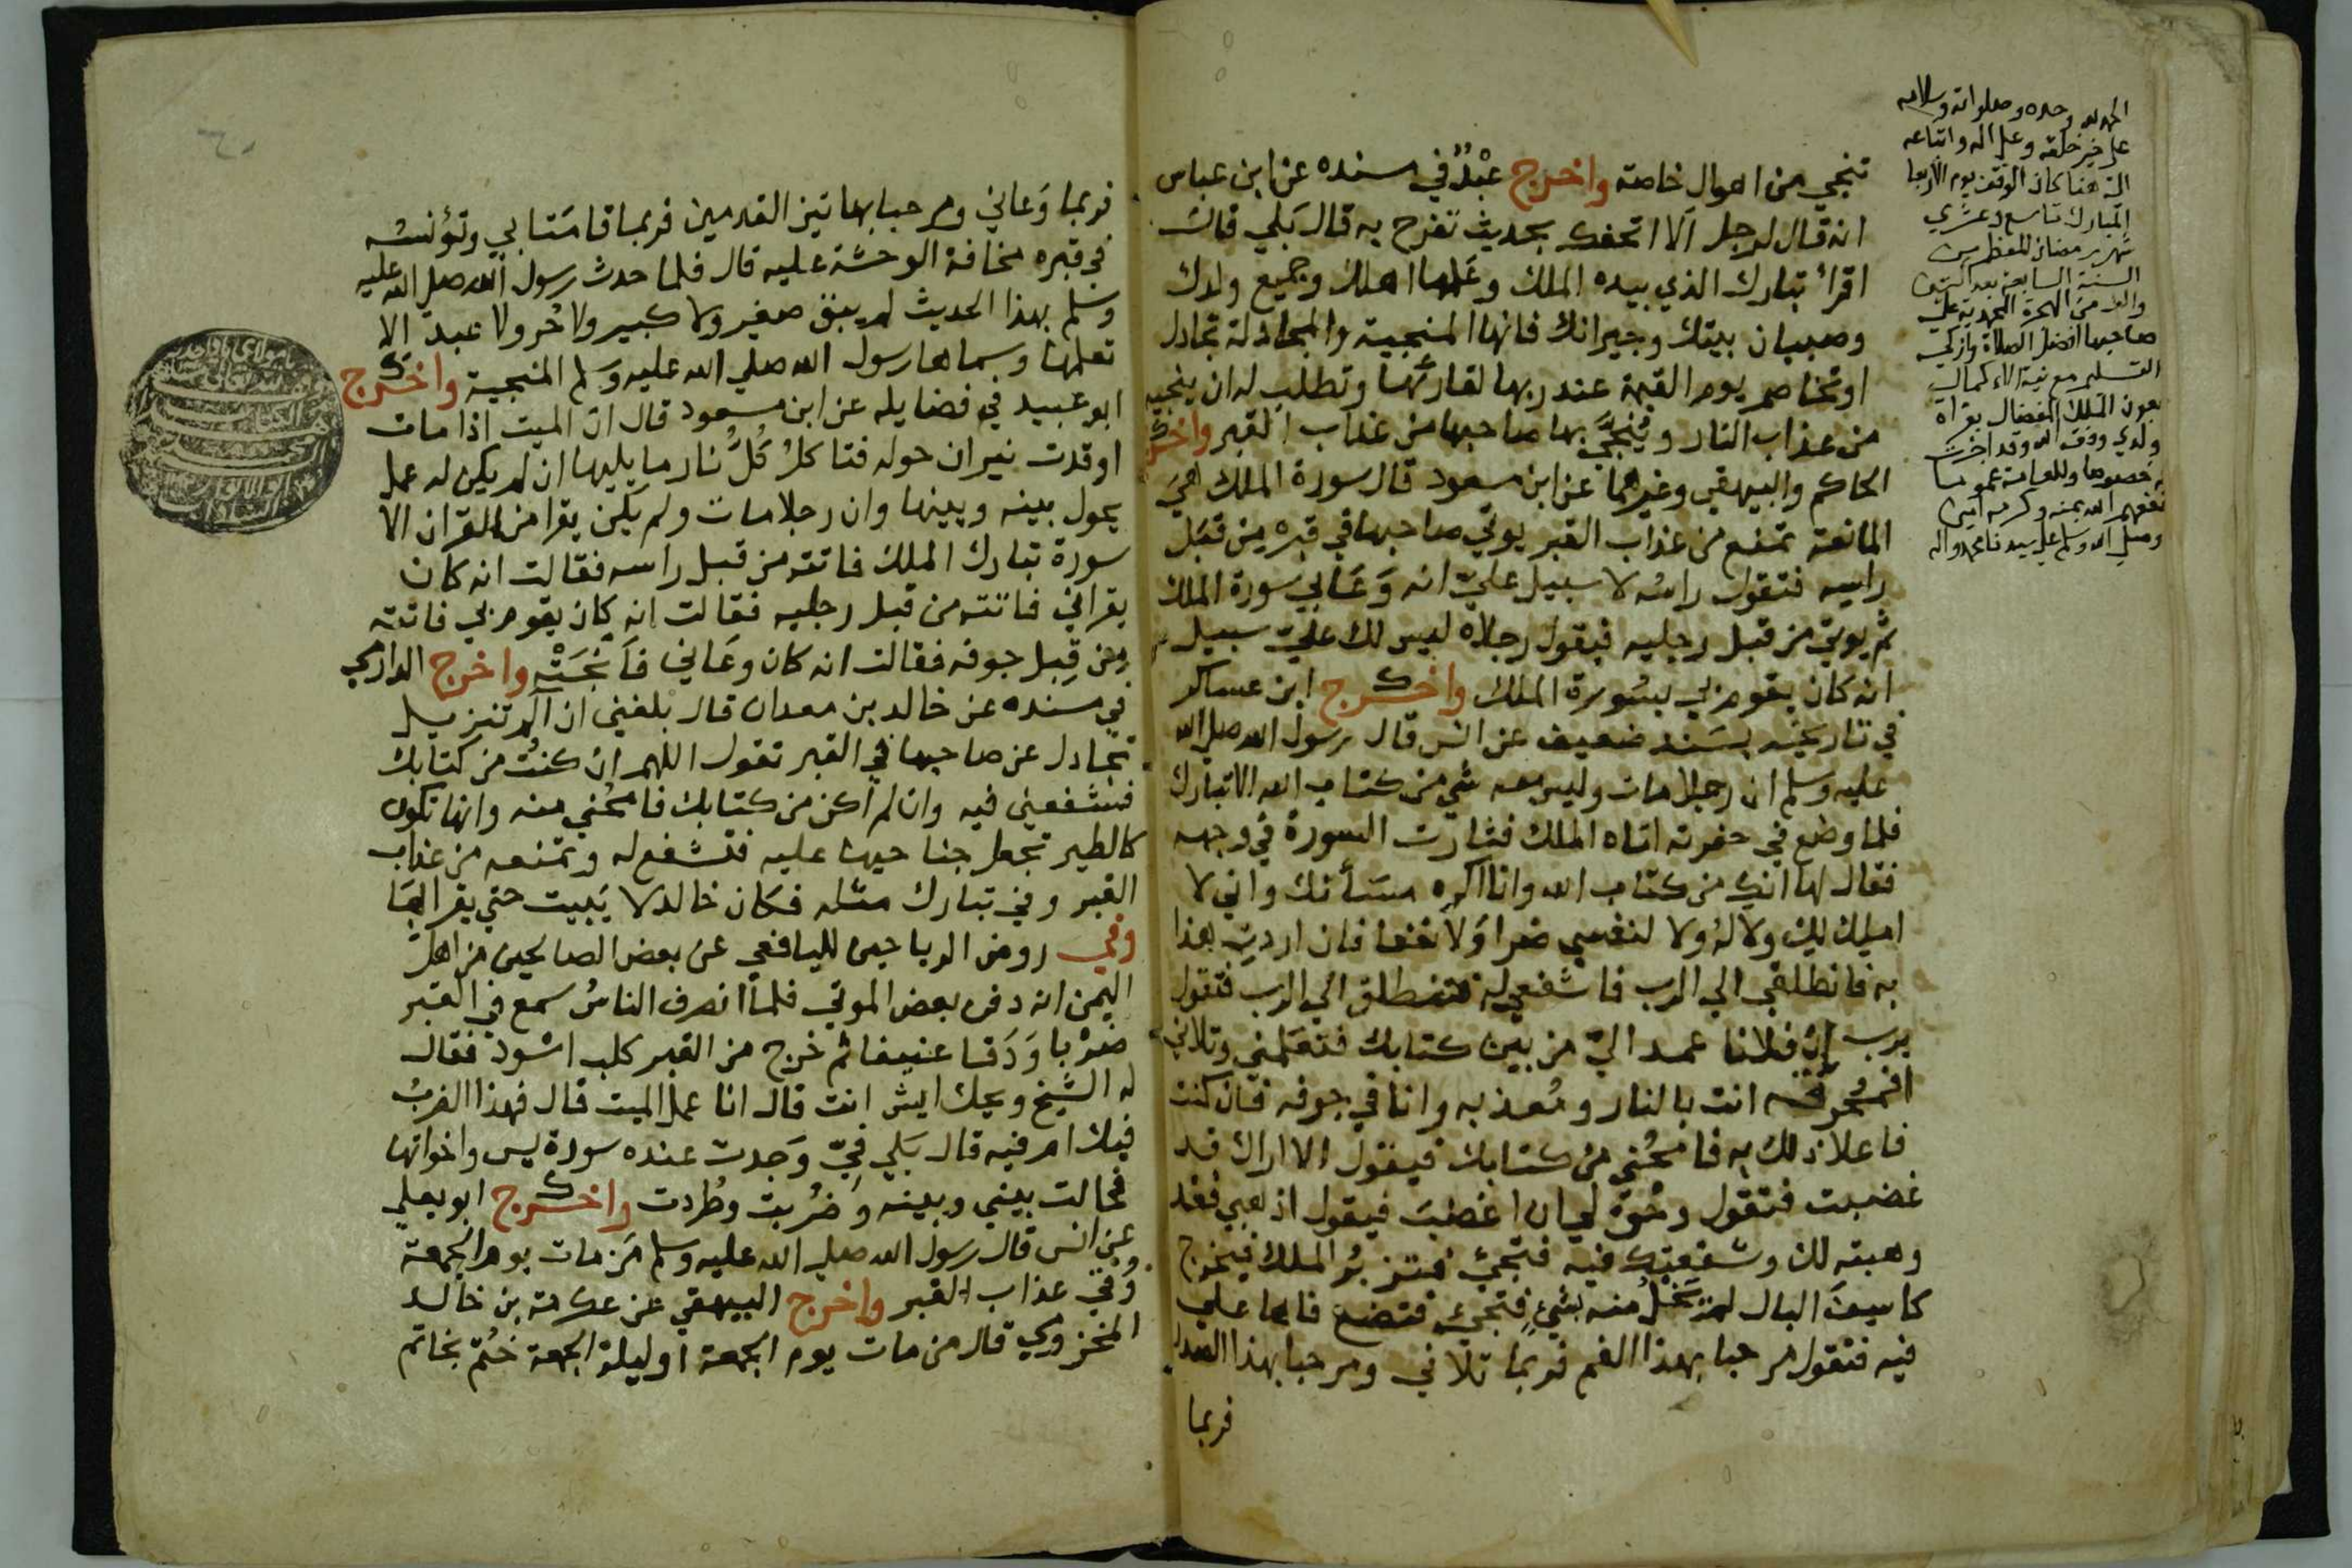 تنجي من اهوال خاصة واخرج عبد في مسنده عن ابن عباس
انه قال لرجل الا اتحفك بحديث تفرح به قال بلي قال
اقرا تبارك الذي بيده الملك وعلمها اهلك وجميع ولدك
وصبيان بيتك وجيرانك فانها المنجية والمجادلة تجادل
او تخاصم يوم القيمة عند ربها لقارئها وتطلب له ان ينجيه
من عذاب النار وينجي بها صاحبها من عذاب القبر واخرج
الحاكم والبيهقي وغيرهما عن ابن مسعود قال سورة الملك هي
المانعة تمنع من عذاب القبر يوتي صاحبها في قبره من قبل
راسه فتقول راسه لا سبيل علي انه وعا بي سورة الملك
ثم يوتي من قبل رجليه فيقول رجلاه ليس لك علي سبيل
انه كان يقوم بي بسورة الملك واخرج ابن عساكر
في تاريخه بسند ضعيف عن انس قال رسول الله صلي الله
عليه وسلم ان رجلا مات وليس معه شي من كتاب الله الا تبارك
فلما وضع في حفرته اتاه الملك فثارت السورة في وجهه
فقال لها انك من كتاب الله وانا اكره مساتك واني لا
املك لك ولا له ولا لنفسي ضرا ولا نفعا فان اردت هذا
به فانطلقي الي الرب فاشفعي له فتنطلق الي الرب فتقول
يرب ان فلانا عمد الي من بين كتابك فتعلمني وتلاني
افمحرقه انت بالنار ومعذبه وانا في جوفه فان كنت
فاعلا ذلك به فامحني من كتابك فيقول الا اراك قد
غضبت فتقول وحق لي ان اغضب فيقول اذهبي فقد
وهبته لك وشفعتك فيه فتجئ فتزبر الملك فيخرج
كاسف البال لم يحل منه بشئ فتجئ فتضع فاها علي
فيه فتقول مرحبا بهذا الفم فربما تلاني ومرحبا بهذا الصدر
فربما
الحمد لله وحده وصلواته وسلامه
علي خير خلقه وعلي اله واتباعه
الي هنا كان الوقف يوم الاربعا
المبارك تاسع وعشري
شهر رمضان المعظم من
السنة السابعة بعد
والالف من الهجرة المحمدية علي
صاحبها افضل الصلاة وازكي
التسليم مع نية الاكمال
بعون الملك المفضال بقراه
ولدي وفقه الله وقد اجزت
له خصوصا وللعامة عموما
نفعهم الله بمنه وكرمه امين
وصلي الله وسلم علي سيدنا محمد واله
فربما وعاني ومرحبا بهاتين القدمين فربما قامتا بي وتؤنسه
في قبره مخافة الوحشة عليه قال فلما حدث رسول الله صلي الله عليه
وسلم بهذا الحديث لم يبق صغير ولا كبير ولا حر ولا عبد الا
تعلمها وسماها رسول الله صلي الله عليه وسلم المنجية واخرج
ابو عبيد في فضايله عن ابن مسعود قال ان الميت اذا مات
اوقدت نيران حوله فتاكل كل نار ما يليها ان لم يكن له عمل
يحول بينه وبينها وان رجلا مات ولم يكن يقرا من القران الا
سورة تبارك الملك فاتته من قبل راسه فقالت انه كان
يقراني فاتته من قبل رجليه فقالت انه كان يقوم بي فاتته
من قبل جوفه فقالت انه كان وعاني فانجته واخرج الدارمي
في مسنده عن خالد بن معدان قال بلغني ان الم تنزيل
تجادل عن صاحبها في القبر تقول اللهم ان كنت من كتابك
فشفعني فيه وان لم اكن من كتابك فامحني منه وانها تكون
كالطير تجعل جناحيها عليه فتشفع له وتمنعه من عذاب
القبر وفي تبارك مثله فكان خالد لا يبيت حتي يقرا بها
وفي روض الرياحين لليافعي عن بعض الصالحين من اهل
اليمن انه دفن بعض الموتي فلما انصرف الناس سمع في القبر
ضربا ودقا عنيفا ثم خرج من القبر كلب اسود فقال
له الشيخ ويحك ايش انت قال انا عمل الميت قال فهذا الضرب
فيك ام فيه قال بلي في وجدت عنده سورة يس واخواتها
فحالت بيني وبينه وضربت وطردت واخرج ابو يعلي
عن انس قال رسول الله صلي الله عليه وسلم من مات يوم الجمعة
وقي عذاب القبر واخرج البيهقي عن عكرمة بن خالد
المخزومي قال من مات يوم الجمعة او ليلة الجمعة ختم بخاتم